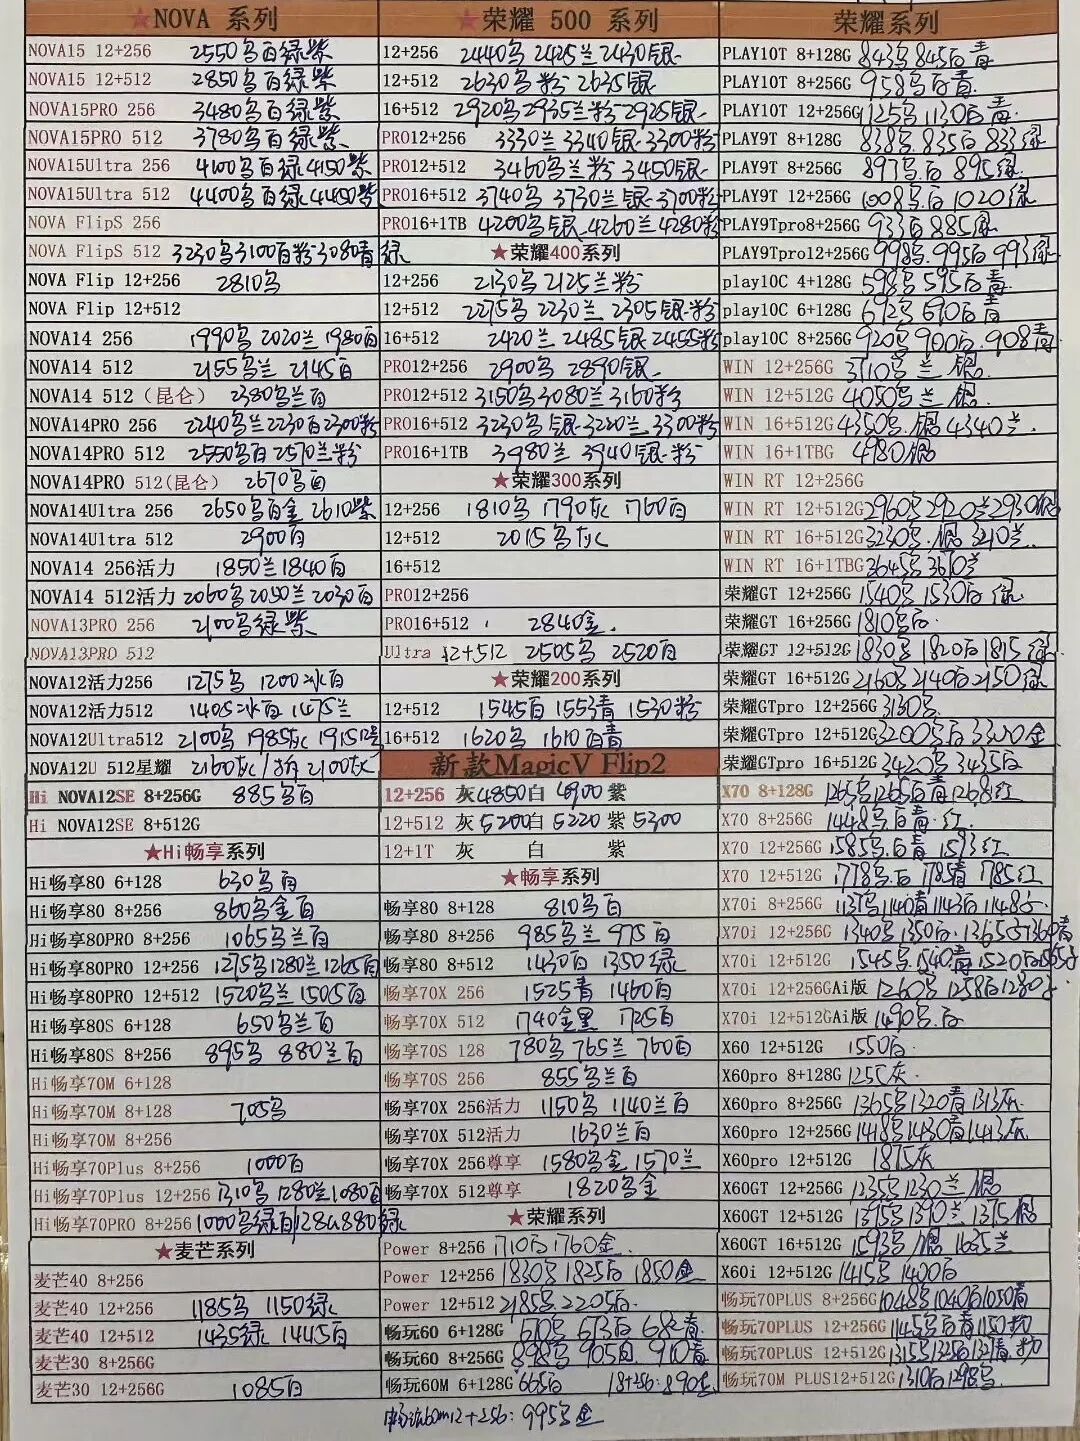 ★NOVA 系列
NOVA15 12+256 2550乌白绿紫
NOVA15 12+512 2850乌白绿紫
NOVA15PRO 256 3480乌白绿紫
NOVA15PRO 512 3780乌白绿紫
NOVA15Ultra 256 4100乌白绿 4150紫
NOVA15Ultra 512 4400乌白绿 4450紫
NOVA FlipS 256
NOVA FlipS 512 3230乌3100白粉3080青绿
NOVA Flip 12+256 2810乌
NOVA Flip 12+512
NOVA14 256 1990乌 2020兰 1980白
NOVA14 512 2155乌兰 2145白
NOVA14 512（昆仑） 2380乌兰白
NOVA14PRO 256 2240乌兰2230白2300粉
NOVA14PRO 512 2550乌白 2570兰粉
NOVA14PRO 512(昆仑) 2670乌白
NOVA14Ultra 256 2650乌白金 2610紫
NOVA14Ultra 512 2900白
NOVA14 256活力 1850兰1840白
NOVA14 512活力 2060乌2050兰 2030白
NOVA13PRO 256 2100乌绿紫
NOVA13PRO 512
NOVA12活力256 1275乌 1200冰白
NOVA12活力512 1405冰白 1475兰
NOVA12Ultra512 2100乌 1985灰 1915
NOVA12U 512星耀 2160灰/ 2100灰
Hi NOVA12SE 8+256G 885乌白
Hi NOVA12SE 8+512G
★Hi畅享系列
Hi畅享80 6+128 630乌白
Hi畅享80 8+256 860乌金白
Hi畅享80PRO 8+256 1065乌兰白
Hi畅享80PRO 12+256 1275乌1280兰1265白
Hi畅享80PRO 12+512 1520乌兰 1505白
Hi畅享80S 6+128 650乌兰白
Hi畅享80S 8+256 895乌 880兰白
Hi畅享70M 6+128
Hi畅享70M 8+128 705乌
Hi畅享70M 8+256
Hi畅享70Plus 8+256 1000白
Hi畅享70Plus 12+256 1310乌 1280兰1080白
Hi畅享70PRO 8+256 1000乌绿白/128G880绿
★麦芒系列
麦芒40 8+256
麦芒40 12+256 1185乌 1150绿
麦芒40 12+512 1435绿 1445白
麦芒30 8+256G
麦芒30 12+256G 1085白
★荣耀 500 系列
12+256 2440乌 2425兰 2430银
12+512 2630乌粉 2635银
16+512 2920乌2935兰粉2925银
PRO12+256 3330兰 3340银 3300粉
PRO12+512 3460乌兰粉 3450银
PRO16+512 3740乌 3730兰银 3700粉
PRO16+1TB 4200乌银 4260兰 4280粉
★荣耀400系列
12+256 2130乌 2125兰粉
12+512 2275乌 2230兰 2305银粉
16+512 2420兰 2485银 2455粉
PRO12+256 2900乌 2890银
PRO12+512 3150乌3080兰3160粉
PRO16+512 3230乌银 3220兰 3300粉
PRO16+1TB 3980兰 3940银粉
★荣耀300系列
12+256 1810乌 1790灰 1760白
12+512 2015乌灰
16+512
PRO12+256
PRO16+512 2840金
Ultra 12+512 2505乌 2520白
★荣耀200系列
12+512 1545白 1553青 1530粉
16+512 1620乌 1610白青
新款MagicV Flip2
12+256 灰4850白 4900 紫
12+512 灰5200白 5220 紫5300
12+1T 灰 白 紫
★畅享系列
畅享80 8+128 810乌白
畅享80 8+256 985乌兰 975白
畅享80 8+512 1430白 1350绿
畅享70X 256 1525青 1460白
畅享70X 512 1740金黑 1725白
畅享70S 128 780乌 765兰 760白
畅享70S 256 855乌兰白
畅享70X 256活力 1150乌 1140兰白
畅享70X 512活力 1630兰白
畅享70X 256尊享 1580乌金 1570兰
畅享70X 512尊享 1820乌金
★荣耀系列
Power 8+256 1710白 1760金
Power 12+256 1830乌 1825白 1850金
Power 12+512 2185乌 2205白
畅玩60 6+128G 610乌 613白 682青
畅玩60 8+256G 898乌 905白 910青
畅玩60M 6+128G 665白 18+256:890
畅玩60m12+256: 995乌金
荣耀系列
PLAY10T 8+128G 843乌 845白青
PLAY10T 8+256G 958乌白青
PLAY10T 12+256G 1125乌 1130白青
PLAY9T 8+128G 838乌 835白 833绿
PLAY9T 8+256G 897乌白 895绿
PLAY9T 12+256G 1008乌白 1020绿
PLAY9Tpro8+256G 933白 885绿
PLAY9Tpro12+256G 998乌 995白 993绿
play10C 4+128G 598乌 595白青
play10C 6+128G 692乌 690白青
play10C 8+256G 920乌 900白 908青
WIN 12+256G 3710乌兰银
WIN 12+512G 4050乌兰银
WIN 16+512G 4350乌银 4340兰
WIN 16+1TBG 4980银
WIN RT 12+256G
WIN RT 12+512G 2960乌2920兰2930银
WIN RT 16+512G 3230乌银 3210兰
WIN RT 16+1TBG 3645乌3610兰
荣耀GT 12+256G 1540乌 1530白绿
荣耀GT 16+256G 1810乌白
荣耀GT 12+512G 1830乌 1820白 1815绿
荣耀GT 16+512G 2160乌2140白2150绿
荣耀GTpro 12+256G 3130乌
荣耀GTpro 12+512G 3200乌白 3320金
荣耀GTpro 16+512G 3420乌 3435白
X70 8+128G 1265乌1265白青1268红
X70 8+256G 1448乌白青红
X70 12+256G 1585乌白青 1593红
X70 12+512G 1778乌白 1785青 1785红
X70i 8+256G 1137乌1140青1143白1148
X70i 12+256G 1340乌1350白 1365 1369青
X70i 12+512G 1545乌1540青1520白1565
X70i 12+256GAi版 1260乌1258白1230
X70i 12+512GAi版 1490乌白
X60 12+512G 1550白
X60pro 8+128G 1255灰
X60pro 8+256G 1365乌1320青1313灰
X60pro 12+256G 1418乌1430青1413灰
X60pro 12+512G 1875灰
X60GT 12+256G 1235乌1230兰银
X60GT 12+512G 1395乌1390兰1375银
X60GT 16+512G 1593乌银 1635兰
X60i 12+512G 1415乌 1400白
畅玩70PLUS 8+256G 1048乌1040白1050青
畅玩70PLUS 12+256G 1145乌白青1150
畅玩70PLUS 12+512G 1315乌1325白1321青
畅玩70M PLUS12+512G 1310白1298乌